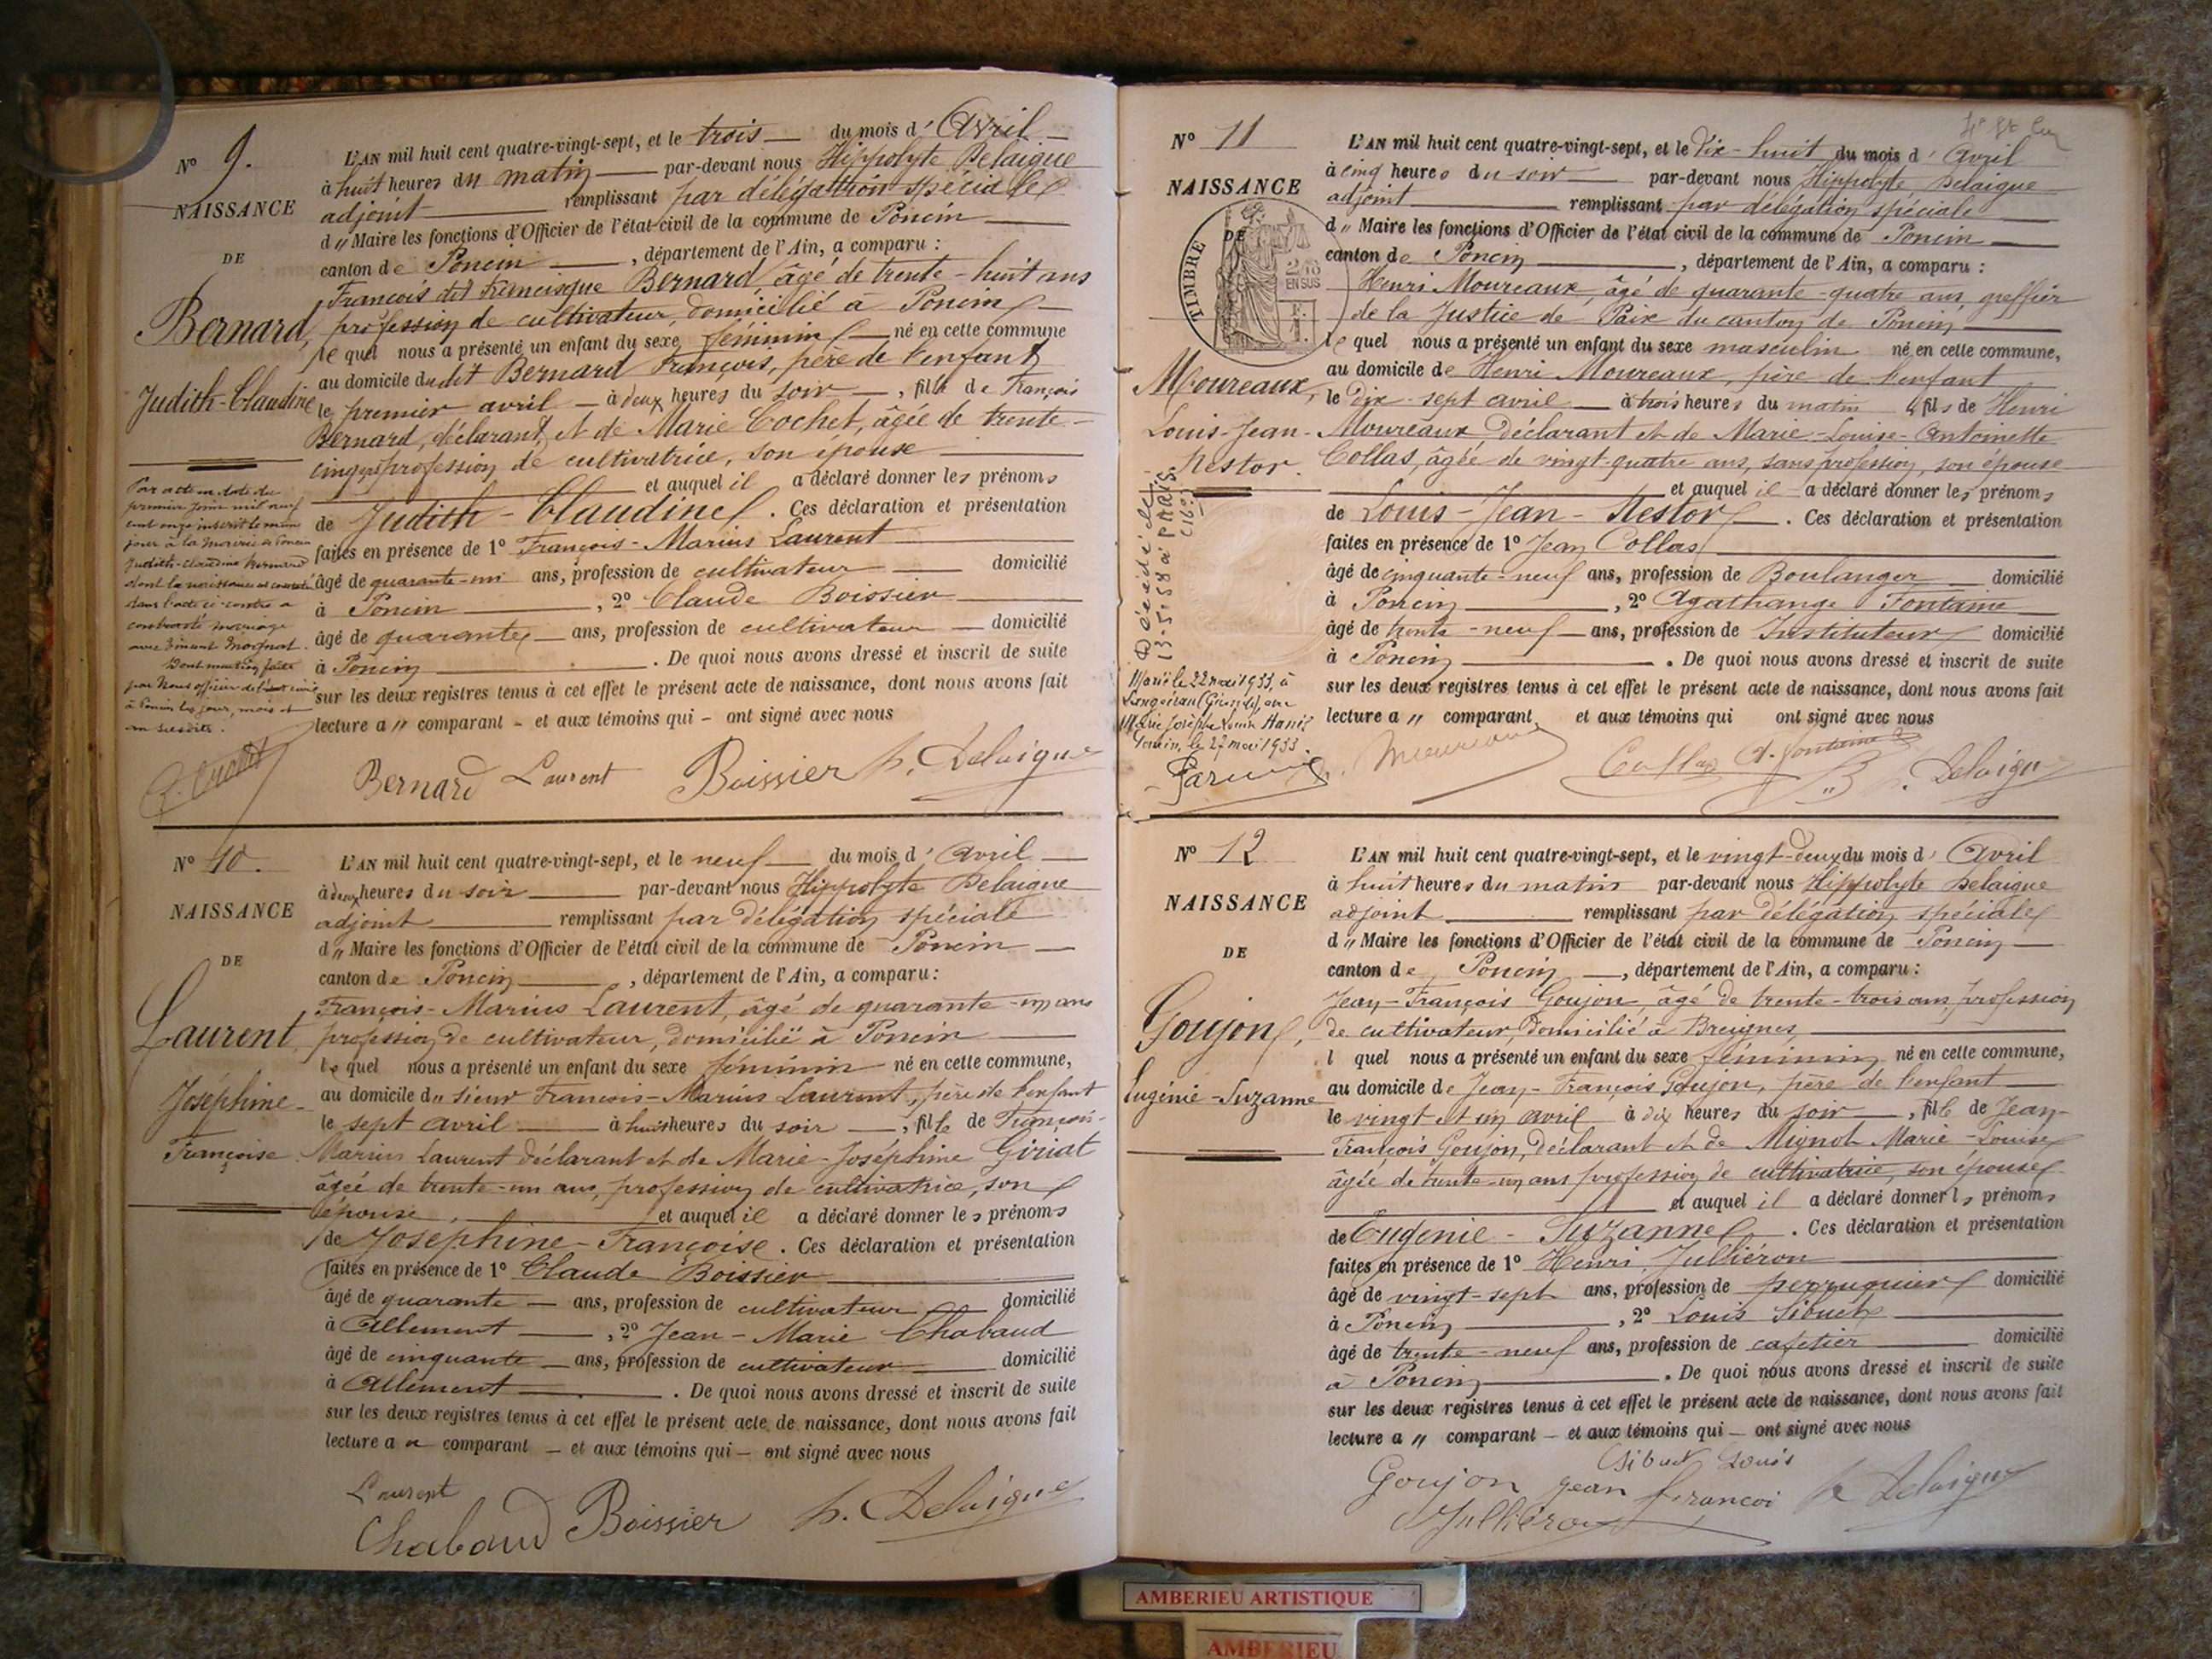 N° 9.
NAISSANCE
DE
Bernard,
Judith-Claudine
L'AN mil huit cent quatre-vingt-sept, et le trois du mois d' Avril
à huit heures du matin par-devant nous Hippolyte Delaigue
adjoint remplissant par délégation spéciale
d " Maire les fonctions d'Officier de l'état-civil de la commune de Poncin
canton de Poncin, département de l'Ain, a comparu :
François dit Francisque Bernard, âgé de trente-huit ans
profession de cultivateur, domicilié à Poncin
le quel nous a présenté un enfant du sexe féminin né en cette commune
au domicile dudit Bernard François, père de l'enfant
le premier avril à deux heures du soir, fille de François
Bernard, déclarant, et de Marie Cochet, âgée de trente-
cinq ans, profession de cultivatrice, son épouse
et auquel il a déclaré donner les prénoms
de Judith-Claudine. Ces déclaration et présentation
faites en présence de 1° François-Marius Laurent
âgé de quarante-un ans, profession de cultivateur domicilié
à Poncin, 2° Claude Boissier
âgé de quarante ans, profession de cultivateur domicilié
à Poncin. De quoi nous avons dressé et inscrit de suite
sur les deux registres tenus à cet effet le présent acte de naissance, dont nous avons fait
lecture a " comparant - et aux témoins qui - ont signé avec nous
Par acte en date du
premier juin mil neuf
cent onze inscrit le même
jour à la Mairie de Poncin
Judith-Claudine Bernard
dont la naissance est constatée
dans l'acte ci-contre a
contracté mariage
avec Vincent
Dont mention faite
par Nous officier de l'état civil
à Poncin les jour, mois et
an susdits.
Bernard Laurent Boissier h. Delaigue
N° 10.
NAISSANCE
DE
Laurent
Joséphine-
Françoise
L'AN mil huit cent quatre-vingt-sept, et le neuf du mois d' Avril
à deux heures du soir par-devant nous Hippolyte Delaigue
adjoint remplissant par délégation spéciale
d " Maire les fonctions d'Officier de l'état civil de la commune de Poncin
canton de Poncin, département de l'Ain, a comparu :
François-Marius Laurent, âgé de quarante-un ans
profession de cultivateur, domicilié à Poncin
le quel nous a présenté un enfant du sexe féminin né en cette commune,
au domicile du sieur François-Marius Laurent, père de l'enfant
le sept avril à huit heures du soir, fille de François-
Marius Laurent déclarant et de Marie-Joséphine Giriat
âgée de trente-un ans, profession de cultivatrice, son
épouse, et auquel il a déclaré donner les prénoms
de Joséphine-Françoise. Ces déclaration et présentation
faites en présence de 1° Claude Boissier
âgé de quarante ans, profession de cultivateur domicilié
à Allement, 2° Jean-Marie Chabaud
âgé de cinquante ans, profession de cultivateur domicilié
à Allement. De quoi nous avons dressé et inscrit de suite
sur les deux registres tenus à cet effet le présent acte de naissance, dont nous avons fait
lecture a u comparant - et aux témoins qui - ont signé avec nous
Laurent
Chabaud Boissier h. Delaigue
N° 11
NAISSANCE
DE
TIMBRE
2/10
EN SUS
Moureaux,
Louis-Jean-
Nestor.
L'AN mil huit cent quatre-vingt-sept, et le dix-huit du mois d' Avril
à cinq heures du soir par-devant nous Hippolyte Delaigue
adjoint remplissant par délégation spéciale
d " Maire les fonctions d'Officier de l'état civil de la commune de Poncin
canton de Poncin, département de l'Ain, a comparu :
Henri Moureaux, âgé de quarante-quatre ans, greffier
de la Justice de Paix du canton de Poncin
le quel nous a présenté un enfant du sexe masculin né en cette commune,
au domicile de Henri Moureaux, père de l'enfant
le dix-sept avril à trois heures du matin, fils de Henri
Moureaux déclarant et de Marie-Louise-Antoinette
Collas, âgée de vingt-quatre ans, sans profession, son épouse
et auquel il a déclaré donner les prénoms
de Louis-Jean-Nestor. Ces déclaration et présentation
faites en présence de 1° Jean Collas
âgé de cinquante-neuf ans, profession de Boulanger domicilié
à Poncin, 2° Agathange Fontaine
âgé de trente-neuf ans, profession de Instituteur domicilié
à Poncin. De quoi nous avons dressé et inscrit de suite
sur les deux registres tenus à cet effet le présent acte de naissance, dont nous avons fait
lecture a " comparant et aux témoins qui ont signé avec nous
Décédé le
13-5-58 à PARIS
(16e)
Marié le 22 mai 1933, à
(Gironde), avec
Marie Joseph Louise
Poncin, le 27 mai 1933.
Moureaux Collas A. Fontaine h. Delaigue
N° 12
NAISSANCE
DE
Goujon,
Eugénie-Suzanne
L'AN mil huit cent quatre-vingt-sept, et le vingt-deux du mois d' Avril
à huit heures du matin par-devant nous Hippolyte Delaigue
adjoint remplissant par délégation spéciale
d " Maire les fonctions d'Officier de l'état civil de la commune de Poncin
canton de Poncin, département de l'Ain, a comparu :
Jean-François Goujon, âgé de trente-trois ans, profession
de cultivateur, domicilié à Breignes,
l quel nous a présenté un enfant du sexe féminin né en cette commune,
au domicile de Jean-François Goujon, père de l'enfant
le vingt et un avril à dix heures du soir, fille de Jean-
François Goujon, déclarant et de Mignot Marie-Louise
âgée de trente-un ans profession de cultivatrice, son épouse
et auquel il a déclaré donner ls prénoms
de Eugénie-Suzanne. Ces déclaration et présentation
faites en présence de 1° Henri Julliéron
âgé de vingt-sept ans, profession de perruquier domicilié
à Poncin, 2° Louis Sibuet
âgé de trente-neuf ans, profession de cafetier domicilié
à Poncin. De quoi nous avons dressé et inscrit de suite
sur les deux registres tenus à cet effet le présent acte de naissance, dont nous avons fait
lecture a " comparant - et aux témoins qui - ont signé avec nous
Sibuet Louis
Goujon jean françoi h Delaigue
Julliéron
AMBERIEU ARTISTIQUE
AMBERIEU